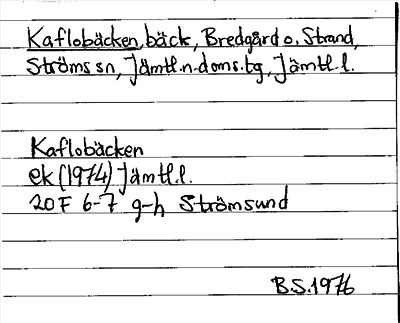 Kaflobäcken, bäck, Bredgård o. Strand,
Ströms sn, Jämtl.n.doms.tg, Jämtl.l.
Kaflobäcken
ek (1974) Jämtl.l.
20 F 6-7 g-h Strömsund
B.S.1976